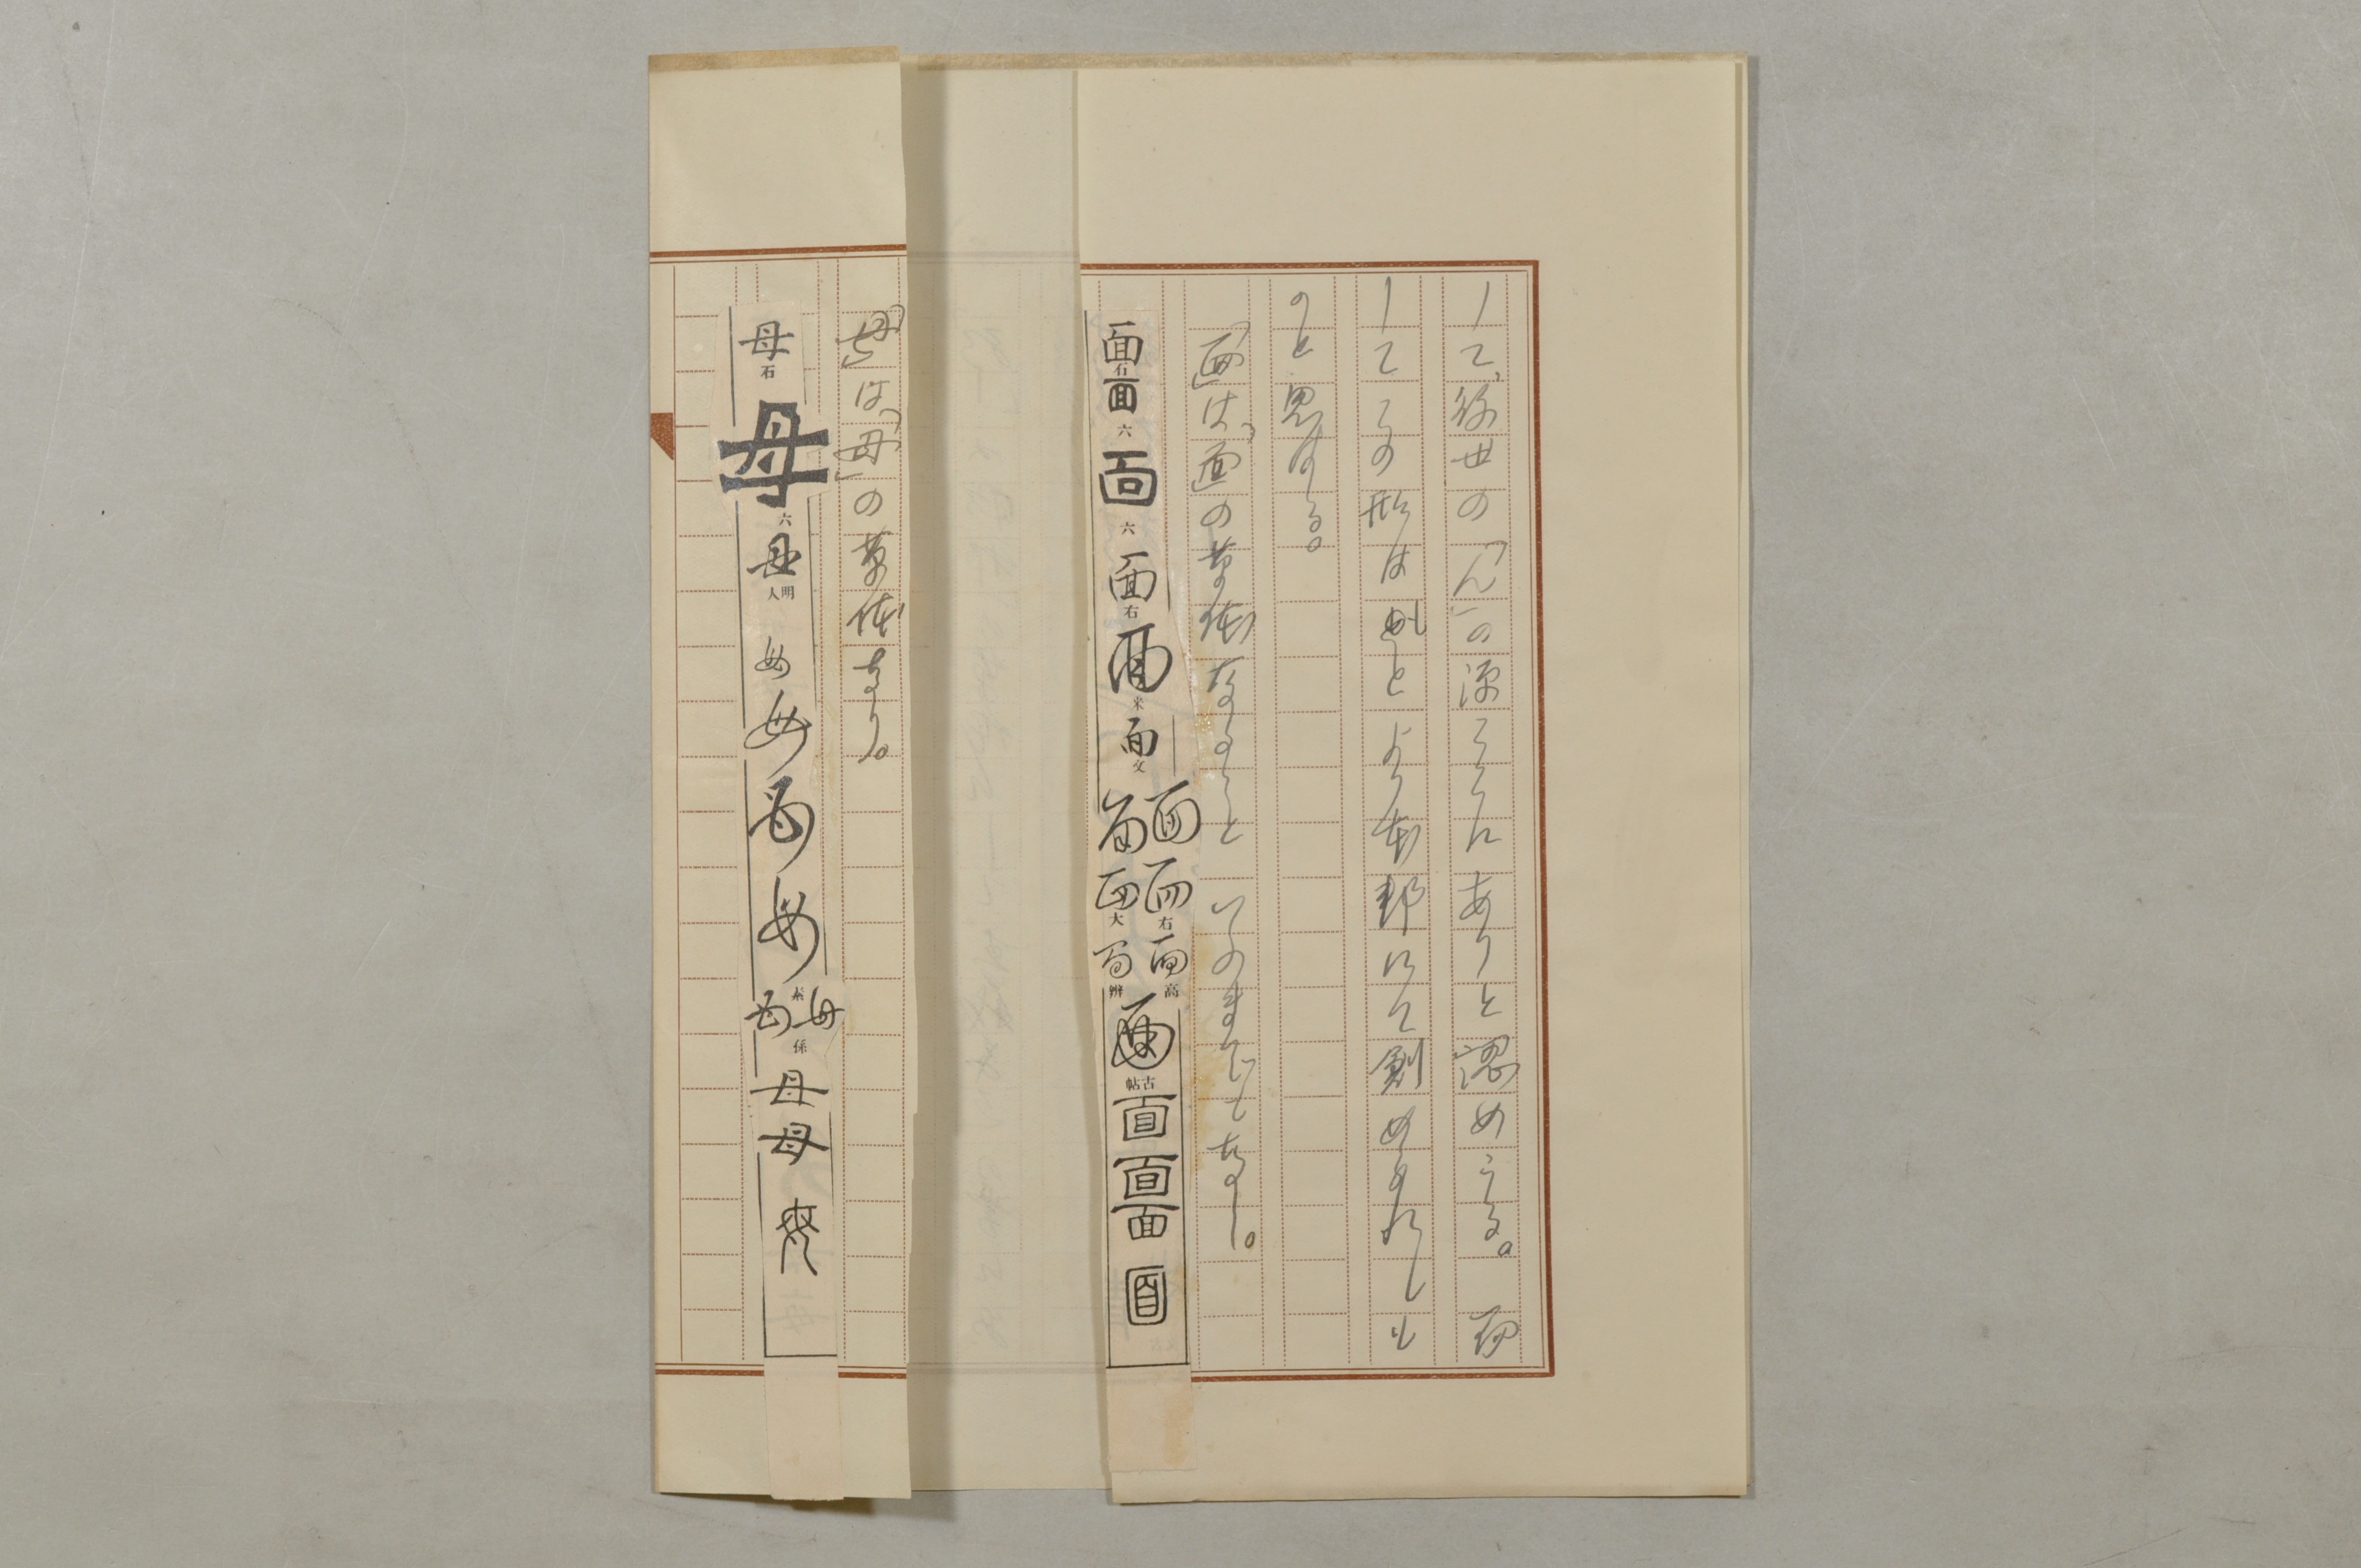 して、後世の「ん」の源こゝにありと認めうる。而
してこの形は もとより本邦にて創められしも
のと思はる。
「面」は、「面」の草体なること いふまでもなし。
面 石 面 六 面 六 面 右 面 米 面 文
面 面 右 面 高
面 面 大 面 辨
面 古帖 面 面 面 面
「母」は、「母」の草体なり。
母 石 母 六 母 明人 母 母 母 母 素 母 母 係 母 母